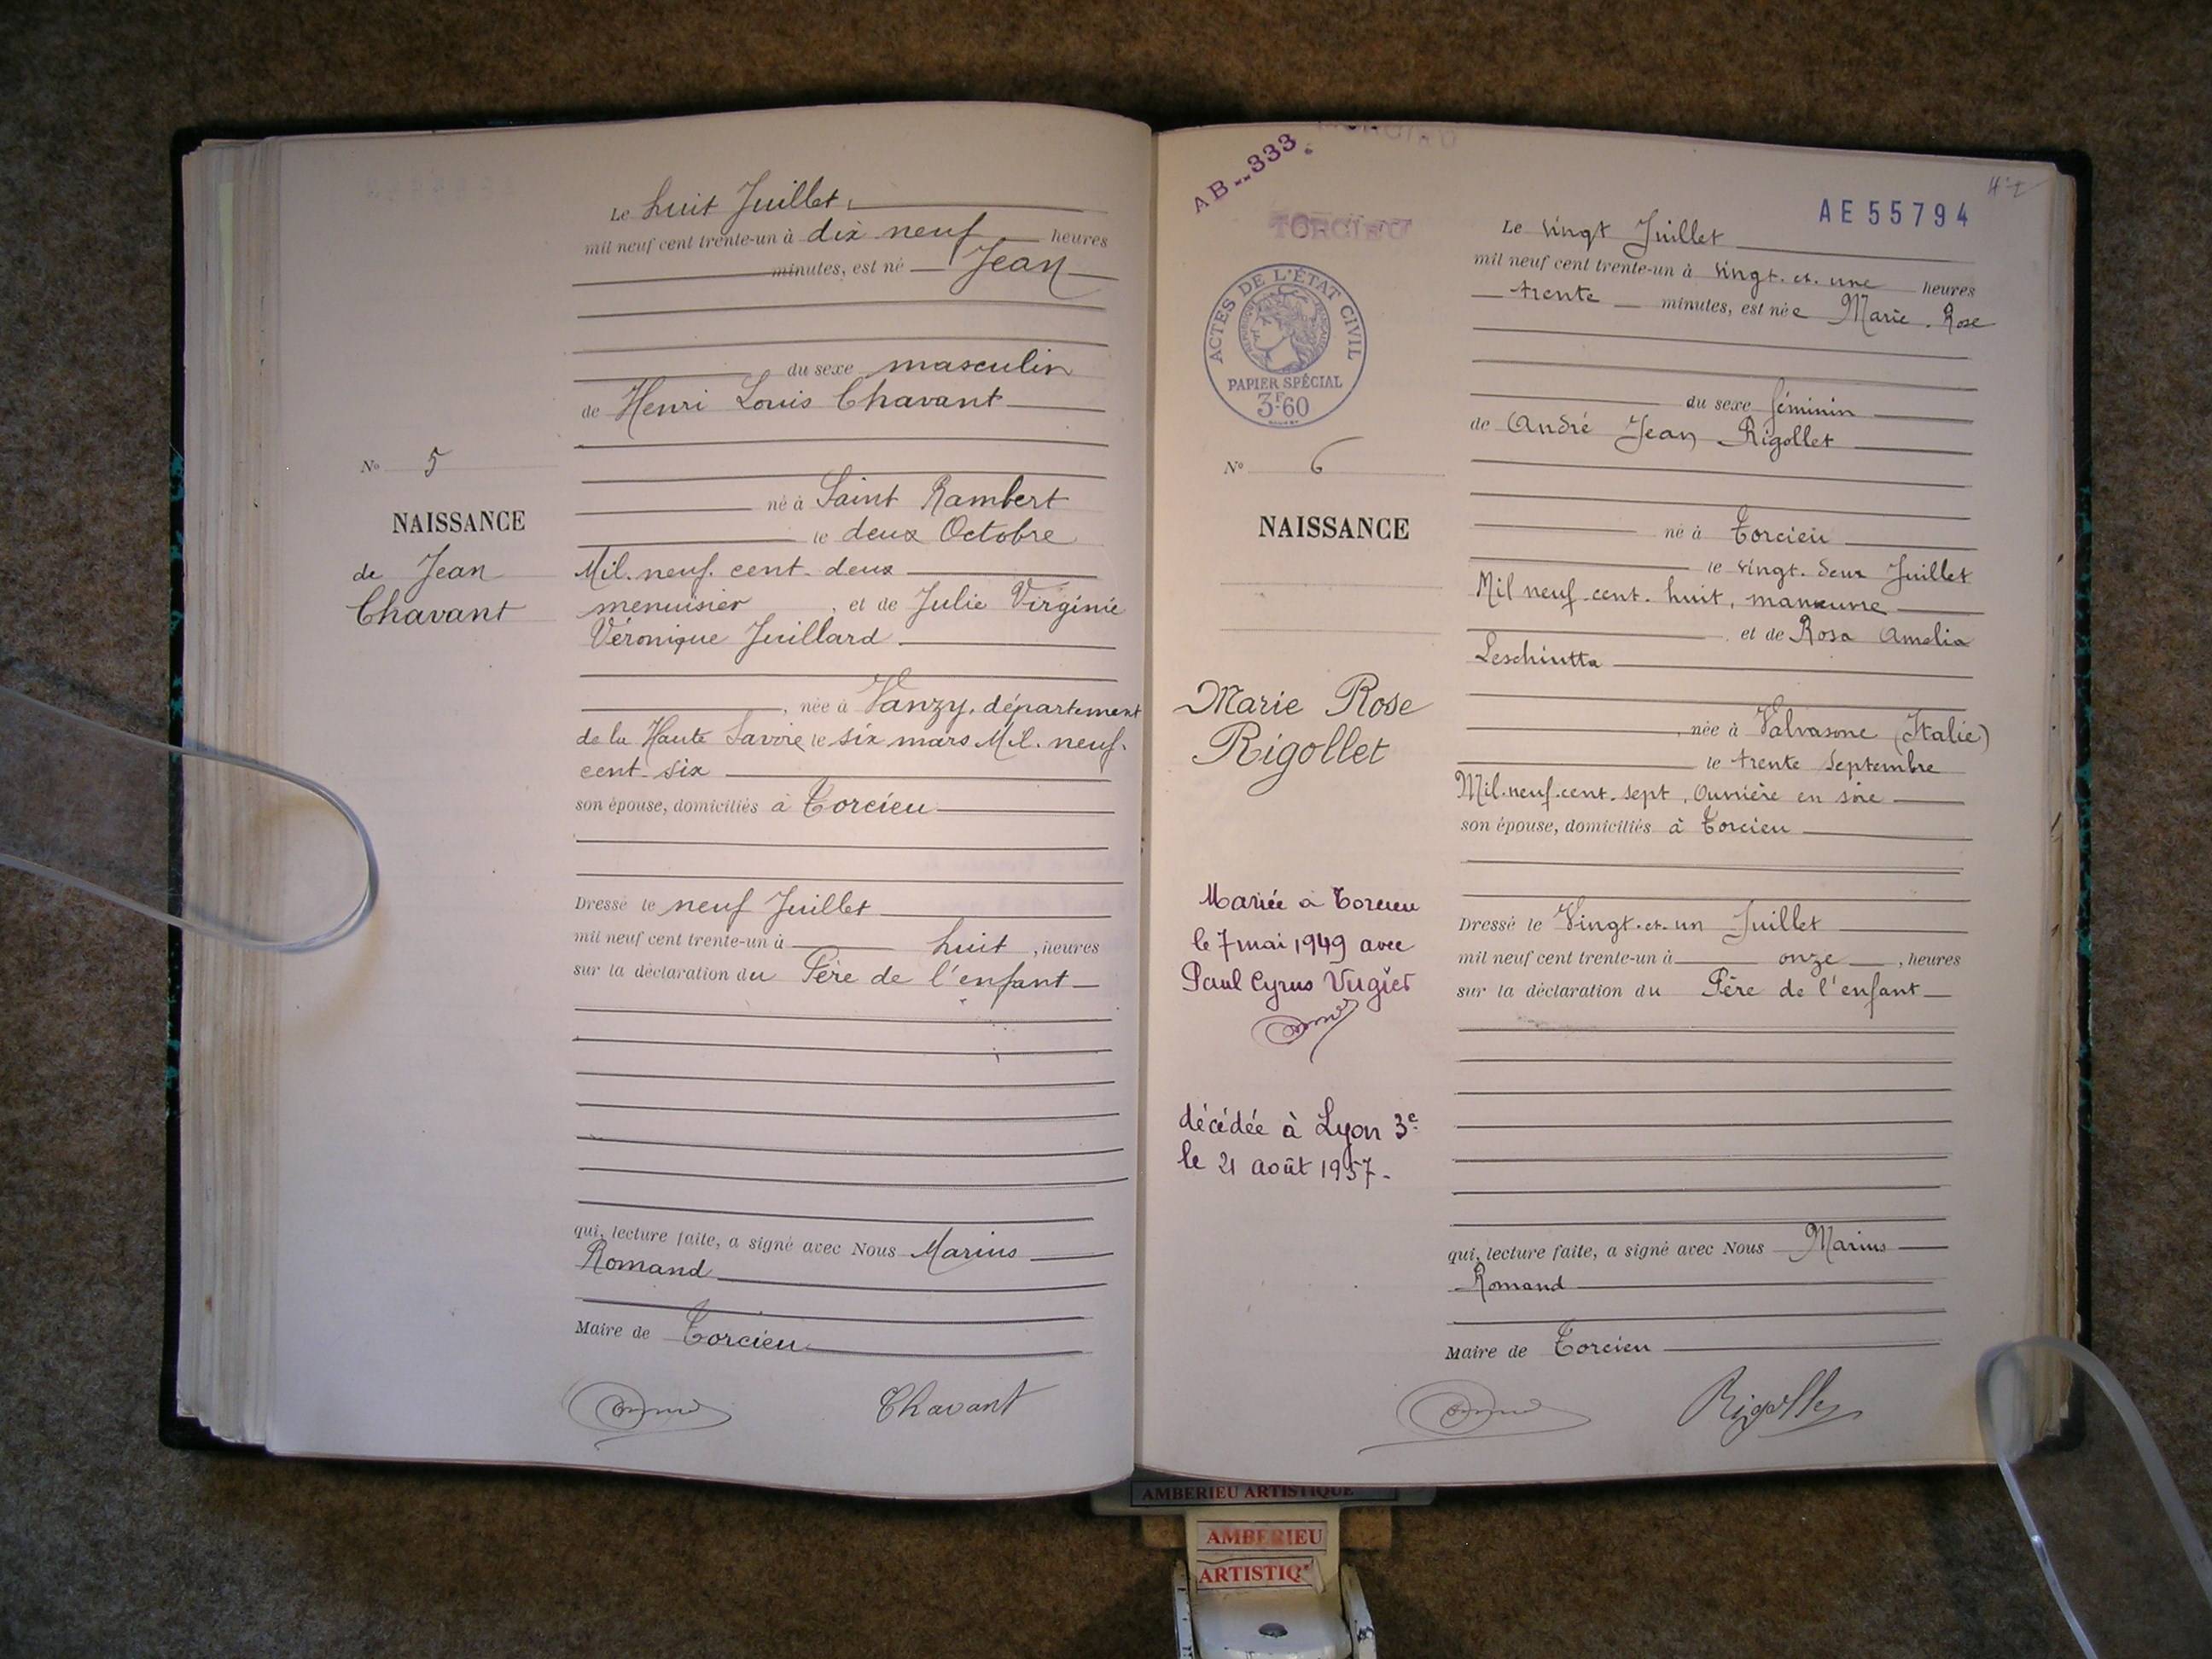 Le huit Juillet,
mil neuf cent trente-un à dix neuf heures
minutes, est né Jean
du sexe masculin
de Henri Louis Chavant
né à Saint Rambert
le deux Octobre
Mil. neuf. cent. deux
menuisier, et de Julie Virginie
Véronique Juillard
, née à Vanzy, département
de la Haute Savoie le six mars Mil. neuf.
cent six
son épouse, domiciliés à Torcieu
Dressé le neuf Juillet
mil neuf cent trente-un à huit, heures
sur la déclaration du Père de l'enfant
qui, lecture faite, a signé avec Nous Marius
Romand
Maire de Torcieu
Chavant
No 5
NAISSANCE
de Jean
Chavant
AB--333
TORCIEU
ACTES DE L'ÉTAT CIVIL
RÉPUBLIQUE FRANÇAISE
PAPIER SPÉCIAL
3F.60
No 6
NAISSANCE
Marie Rose
Rigollet
Mariée à Torcieu
le 7 mai 1949 avec
Paul Cyrus
décédée à Lyon 3e
le 21 août 1957.
AE 55794
Le vingt Juillet
mil neuf cent trente-un à vingt. et. une heures
trente minutes, est née Marie. Rose
du sexe féminin
de André Jean Rigollet
né à Torcieu
le vingt. deux Juillet
Mil neuf. cent. huit, manœuvre
et de Rosa Amelia
Leschiutta
, née à Valvasone (Italie)
le trente Septembre
Mil. neuf. cent. sept, Ouvrière en soie
son épouse, domiciliés à Torcieu
Dressé le Vingt. et. un Juillet
mil neuf cent trente-un à onze, heures
sur la déclaration du Père de l'enfant
qui, lecture faite, a signé avec Nous Marius
Romand
Maire de Torcieu
Rigollet
AMBERIEU ARTISTIQUE
AMBERIEU
ARTISTIQ